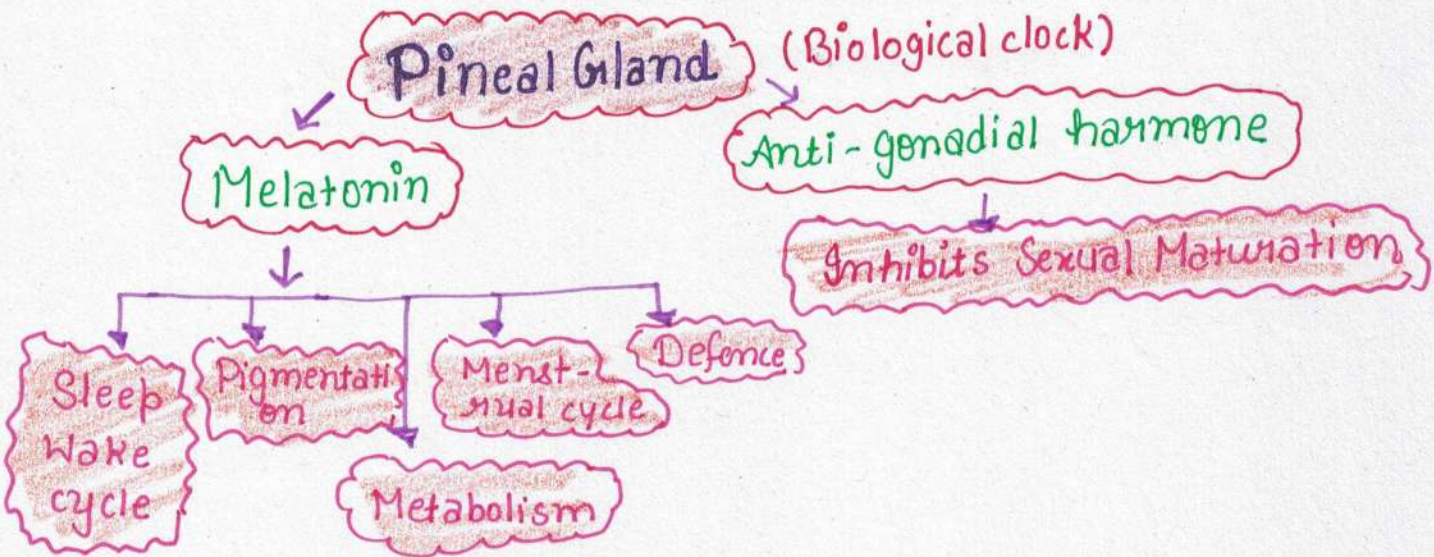 Pineal Gland
(Biological clock)
Melatonin
Anti-gonadial harmone
Inhibits Sexual Maturation
Sleep
Wake
cycle
Pigmentati
on
Metabolism
Menst-
rual cycle
Defence